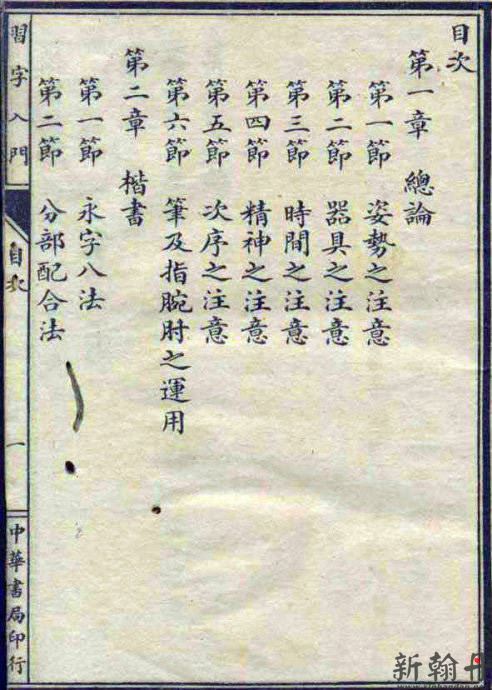 目次
第一章　總論
第一節　姿勢之注意
第二節　器具之注意
第三節　時間之注意
第四節　精神之注意
第五節　次序之注意
第六節　筆及指腕肘之運用
第二章　楷書
第一節　永字八法
第二節　分部配合法
習字入門
目次
一
中華書局印行
新翰